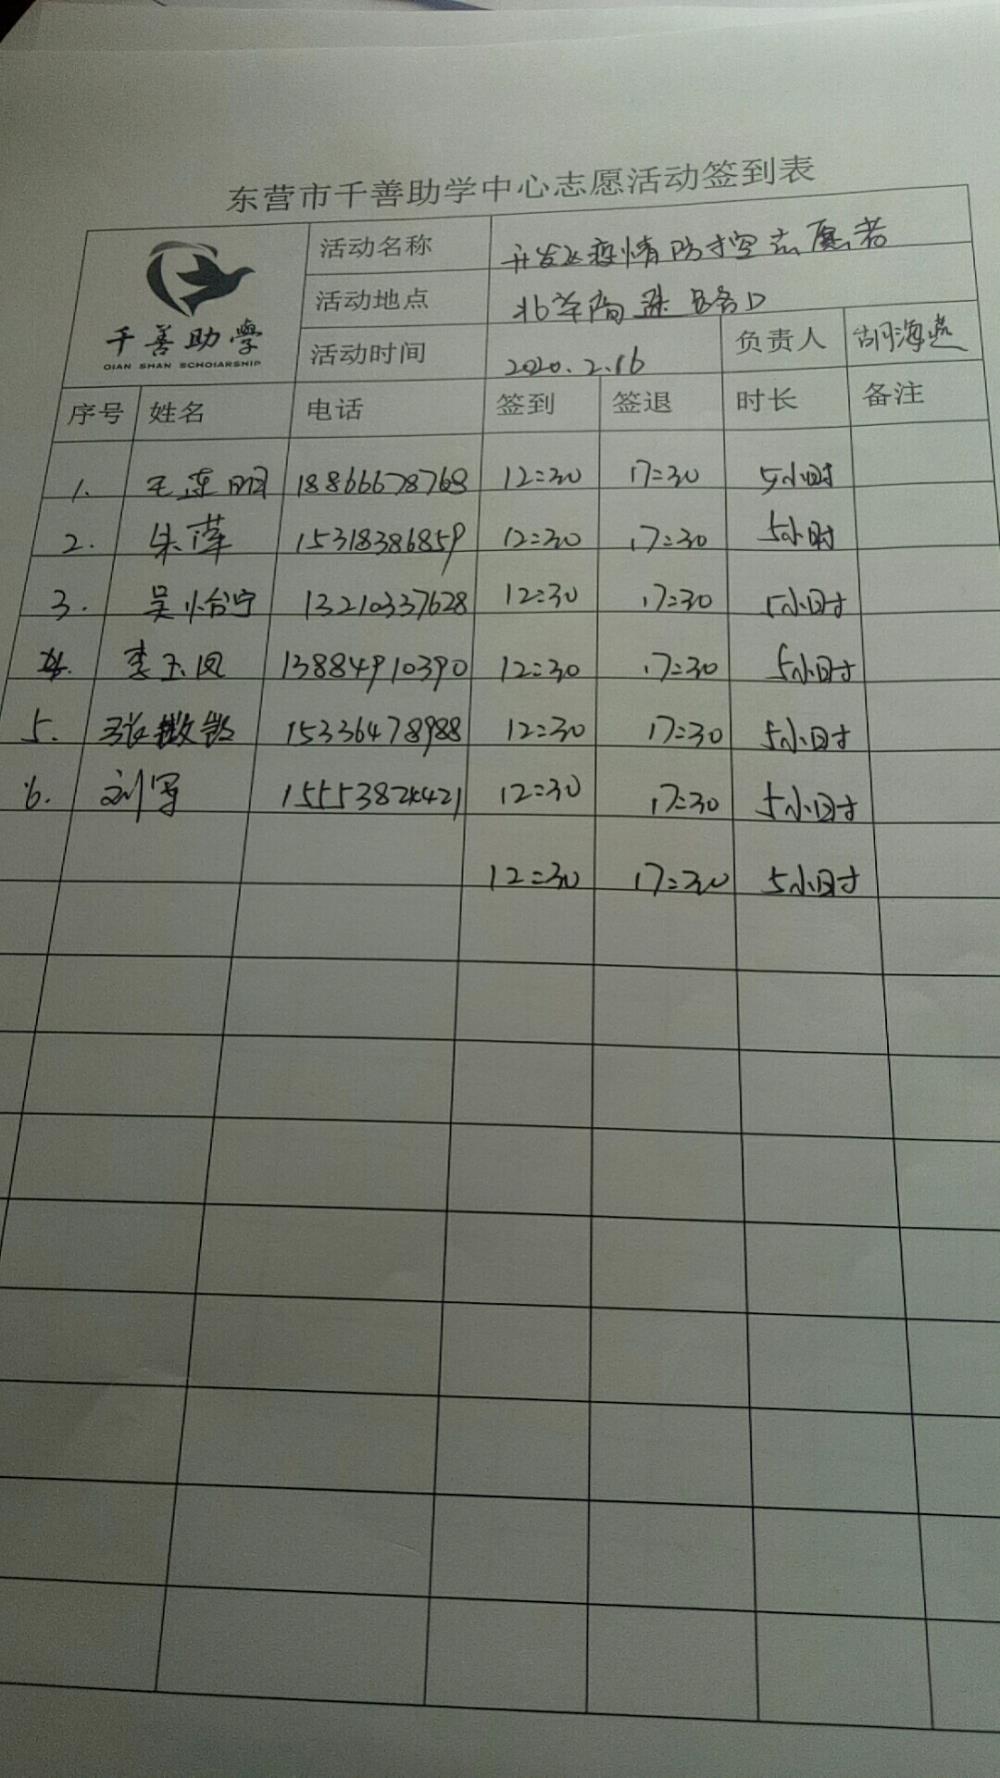 东营市千善助学中心志愿活动签到表
千善助學
QIAN SHAN SCHOIARSHIP
活动名称 开发区疫情防控志愿者
活动地点 路口
活动时间 2020.2.16 负责人 胡海燕
序号 姓名 电话 签到 签退 时长 备注
1. 王莲明 18866678768 12:30 17:30 5小时
2. 朱萍 15318386859 12:30 17:30 5小时
3. 吴怡宁 13210337628 12:30 17:30 5小时
4. 李玉凤 13884910390 12:30 17:30 5小时
5. 张 15336478988 12:30 17:30 5小时
6. 刘 12:30 17:30 5小时
12:30 17:30 5小时